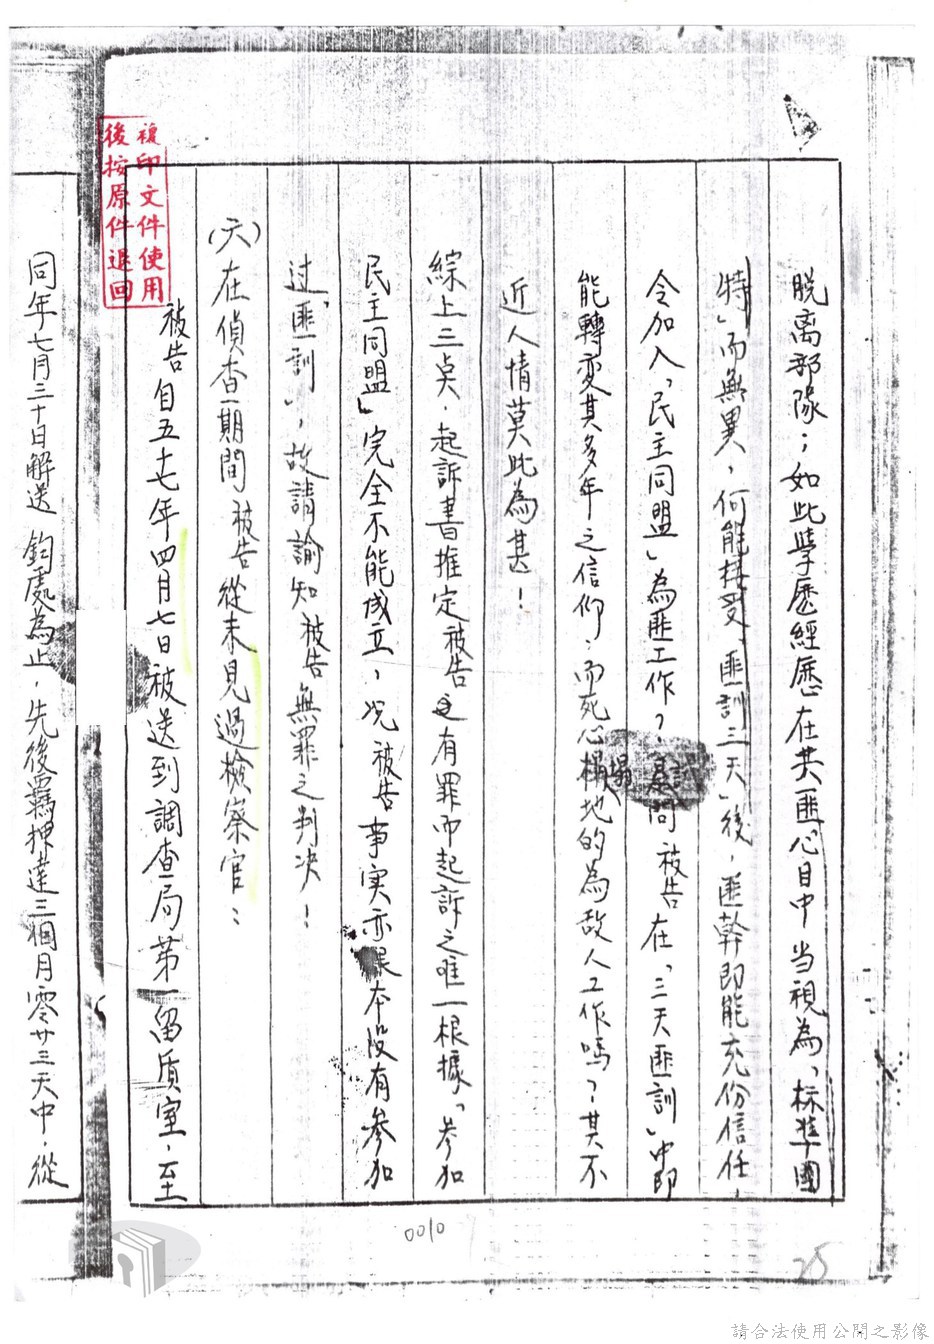 脱离部隊；如此學歷經歷在共匪心目中当視為「标準國
特」而無異，何能接受「匪訓三天」後，匪幹即能充份信任，
令加入「民主同盟」為匪工作？試問被告在「三天匪訓」中即
能轉变其多年之信仰，而死心榻地的為敌人工作嗎？其不
近人情莫此為甚！
綜上三点，起訴書推定被告之有罪而起訴之唯一根據「参加
民主同盟」完全不能成立，况被告事实亦根本没有参加
过「匪訓」，故請諭知被告無罪之判决！
(六)在偵查期間被告從未見過檢察官：
被告自五十七年四月七日被送到調查局第一留质室，至
同年七月三十日解送 鈞處為止，先後羈押達三個月零廿三天中，從
複印文件使用
後按原件退回
0010
25
請合法使用公開之影像